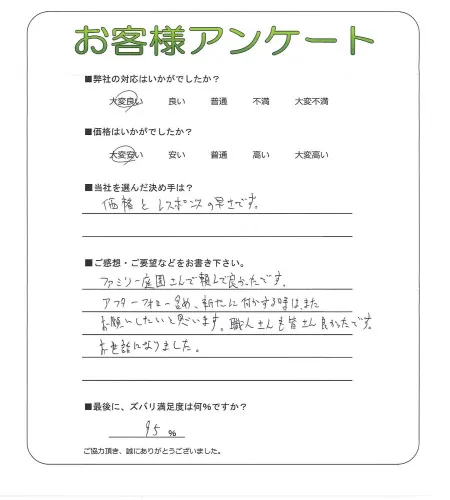 お客様アンケート
■弊社の対応はいかがでしたか？
大変良い 良い 普通 不満 大変不満
■価格はいかがでしたか？
大変安い 安い 普通 高い 大変高い
■当社を選んだ決め手は？
価格とレスポンスの早さです。
■ご感想・ご要望などをお書き下さい。
ファミリー庭園さんで頼んで良かったです。
アフターフォロー含め、新たに何かする時は、また
お願いしたいと思います。職人さんも皆さん良かったです。
お世話になりました。
■最後に、ズバリ満足度は何％ですか？
95 ％
ご協力頂き、誠にありがとうございました。